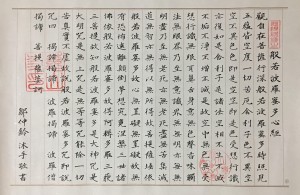 般若波羅蜜多心經
觀自在菩薩行深般若波羅蜜多時照見
五蘊皆空度一切苦厄舍利子色不異空
空不異色色即是空空即是色受想行識
亦復如是舍利子是諸法空相不生不滅
不垢不淨不增不減是故空中無色無受
想行識無眼耳鼻舌身意無色聲香味觸
法無眼界乃至無意識界無無明亦無無
明盡乃至無老死亦無老死盡無苦集滅
道無智亦無得以無所得故菩提薩埵依
般若波羅蜜多故心無罣礙無罣礙故無
有恐怖遠離顛倒夢想究竟涅槃三世諸
佛依般若波羅蜜多故得阿耨多羅三藐
三菩提故知般若波羅蜜多是大神咒是
大明咒是無上咒是無等等咒能除一切
苦真實不虛故說般若波羅蜜多咒即說
咒曰 揭諦揭諦 波羅揭諦 波羅僧
揭諦 菩提薩婆訶
沐手敬書